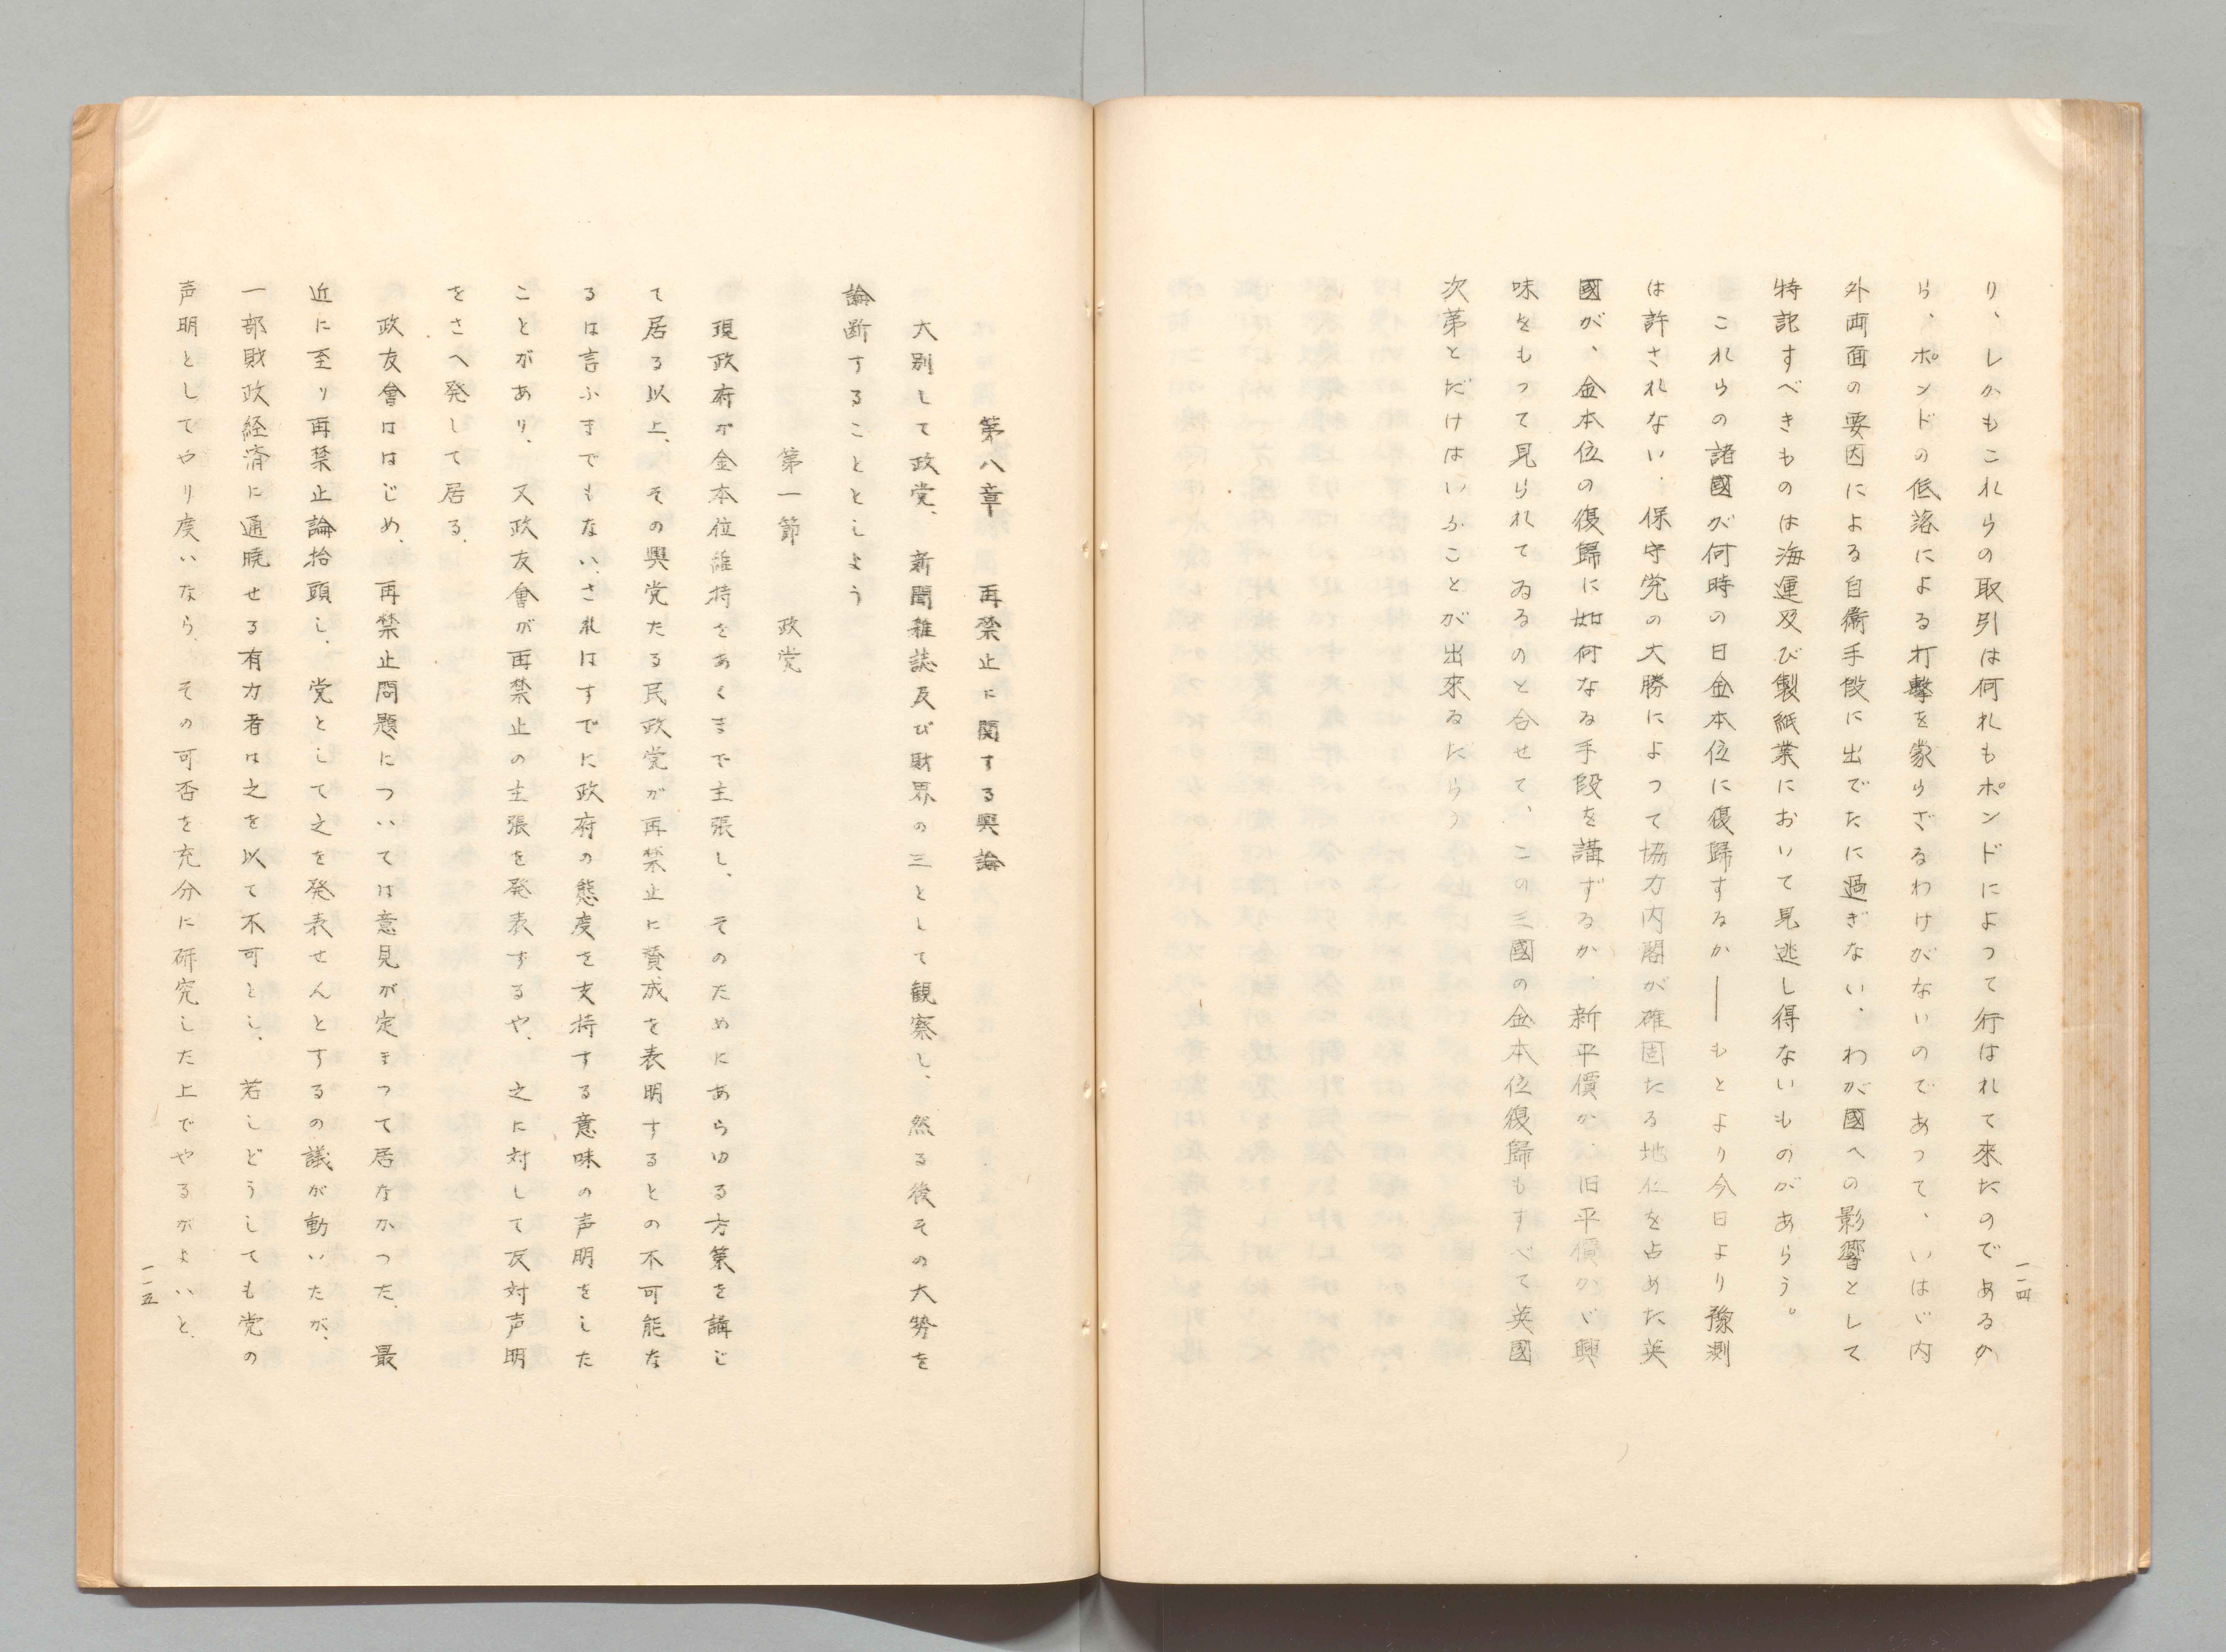 り、しかもこれらの取引は何れもポンドによつて行はれて来たのであるか
ら、ポンドの低落による打撃を蒙らざるわけがないのであつて、いはゞ内
外両面の要因による自衞手段に出でたに過ぎない、わが國への影響として
特記すべきものは海運及び製紙業において見逃し得ないものがあらう。
これらの諸國が何時の日金本位に復歸するか――もとより今日より豫測
は許されない、保守党の大勝によつて協力内閣が確固たる地位を占めた英
國が、金本位の復歸に如何なる手段を講ずるか、新平價か、旧平價かゞ興
味をもつて見られてゐるのと合せて、この三國の金本位復歸もすべて英國
次第とだけはいふことが出來るだらう
一一四
第八章 再禁止に関する輿論
大別して政党、新聞雑誌及び財界の三として観察し、然る後その大勢を
論断することとしよう
第一節 政党
現政府が金本位維持をあくまで主張し、そのためにあらゆる方策を講じ
て居る以上、その與党たる民政党が再禁止に賛成を表明するとの不可能な
るは言ふまでもない、されはすでに政府の態度を支持する意味の声明をした
ことがあり、又政友會が再禁止の主張を発表するや、之に対して反対声明
をさへ発して居る、
政友會ははじめ、再禁止問題については意見が定まつて居なかつた、最
近に至り再禁止論抬頭し、党として之を発表せんとするの議が動いたが、
一部財政経済に通暁せる有力者は之を以て不可とし、若しどうしても党の
声明としてやり度いなら、その可否を充分に研究した上でやるがよいと、
一一五